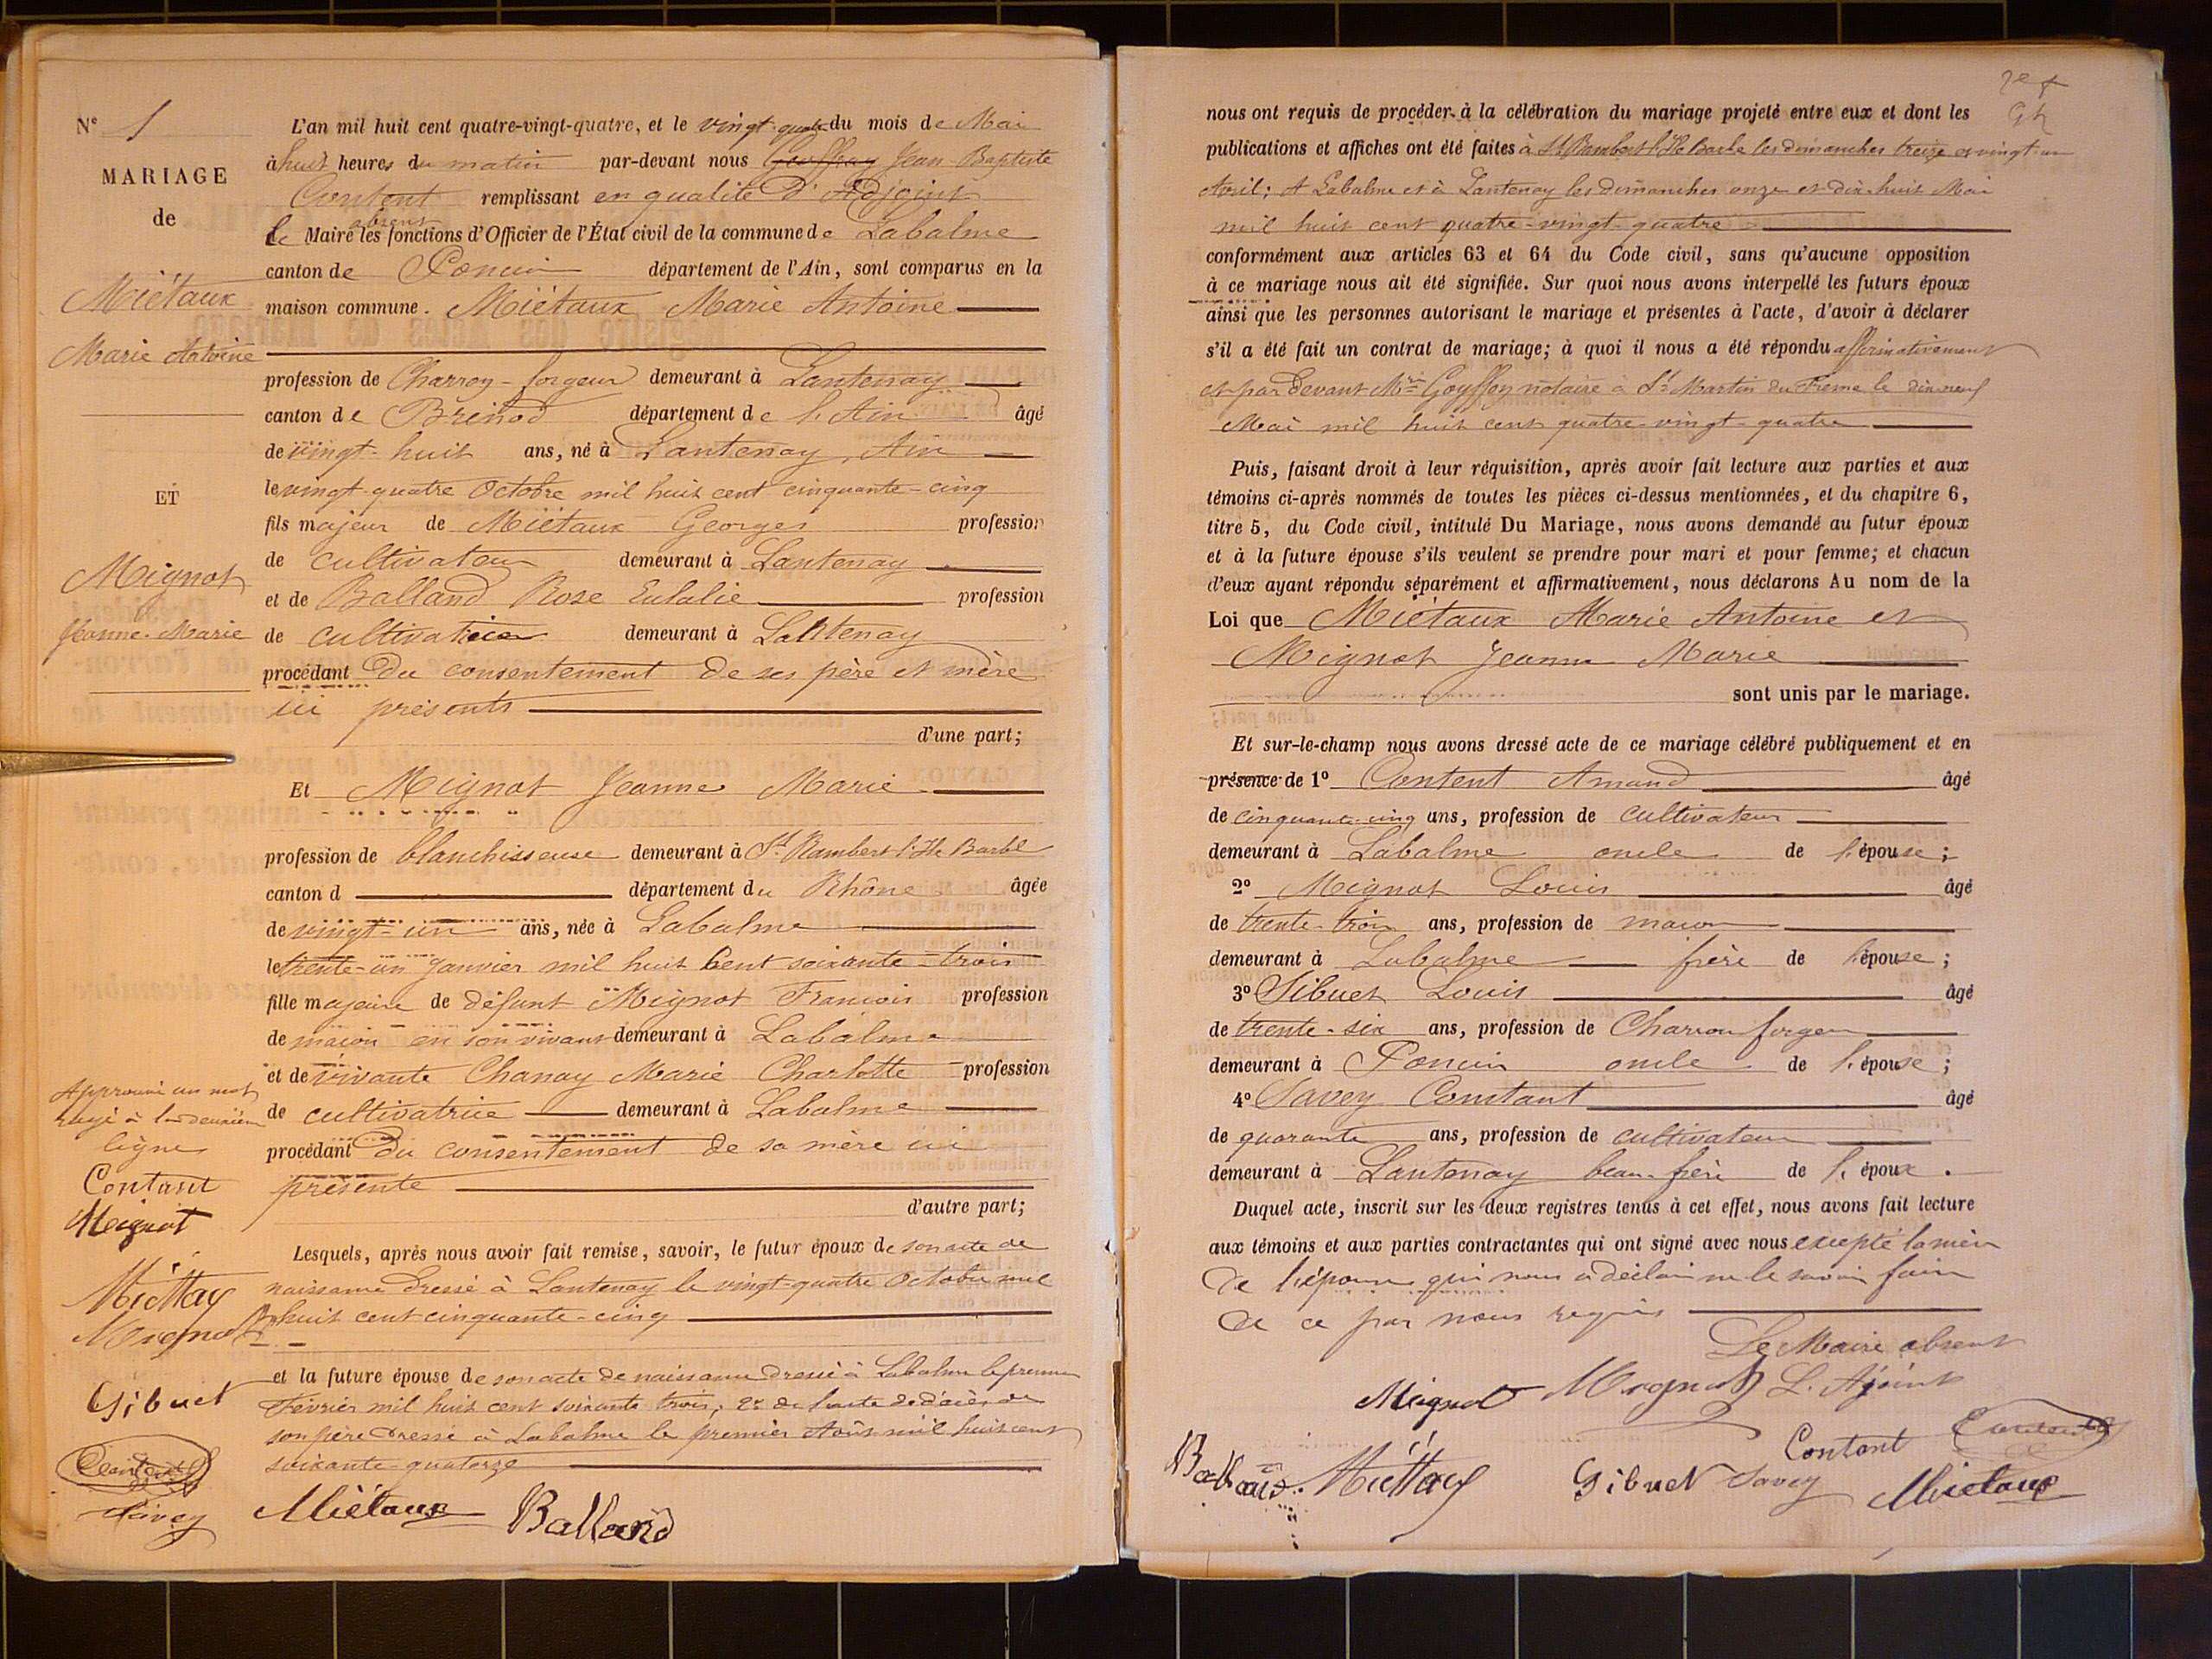 N° 1
MARIAGE
de
Miétaux
Marie Antoine
ET
Mignot
Jeanne-Marie
Approuvé un mot
rayé à la deuxième
ligne
Contant
Mignot
Miéttay
Mignot
Sibuet
Savey
L'an mil huit cent quatre-vingt-quatre, et le vingt-quatre du mois de Mai
à huit heures du matin par-devant nous Geoffray Jean Baptiste
Content remplissant en qualité d'Adjoint
le Maire absent les fonctions d'Officier de l'État civil de la commune de Labalme
canton de Poncin département de l'Ain, sont comparus en la
maison commune. Miétaux Marie Antoine
profession de Charron-forgeur demeurant à Lantenay
canton de Brénod département de l'Ain âgé
de vingt-huit ans, né à Lantenay, Ain
le vingt-quatre Octobre mil huit cent cinquante-cinq
fils majeur de Miétaux Georges profession
de cultivateur demeurant à Lantenay
et de Balland Rose Eulalie profession
de cultivatrice demeurant à Lantenay
procédant du consentement de ses père et mère
ici présents
d'une part;
Et Mignot Jeanne Marie
profession de blanchisseuse demeurant à St Rambert l'Ile Barbe
canton d département du Rhône âgée
de vingt-un ans, née à Labalme
le trente-un Janvier mil huit cent soixante-trois
fille majeure de défunt Mignot François profession
de maçon en son vivant demeurant à Labalme
et de vivante Chanay Marie Charlotte profession
de cultivatrice demeurant à Labalme
procédant du consentement de sa mère ici
présente
d'autre part;
Lesquels, après nous avoir fait remise, savoir, le futur époux de son acte de
naissance dressé à Lantenay le vingt-quatre Octobre mil
huit cent cinquante-cinq
et la future épouse de son acte de naissance dressé à Labalme le premier
Février mil huit cent soixante trois; 2° de l'acte de décès de
son père dressé à Labalme le premier Août mil huit cent
soixante-quatorze
Miétaux Balland
nous ont requis de procéder à la célébration du mariage projeté entre eux et dont les
publications et affiches ont été faites à St Rambert l'Ile Barbe les dimanches treize et vingt un
Avril; A Labalme et à Lantenay les dimanches onze et dix-huit Mai
mil huit cent quatre-vingt-quatre
conformément aux articles 63 et 64 du Code civil, sans qu'aucune opposition
à ce mariage nous ait été signifiée. Sur quoi nous avons interpellé les futurs époux
ainsi que les personnes autorisant le mariage et présentes à l'acte, d'avoir à déclarer
s'il a été fait un contrat de mariage; à quoi il nous a été répondu affirmativement
et par devant Mtre Goyffon notaire à St Martin du Fresne le dix-neuf
Mai mil huit cent quatre-vingt-quatre
Puis, faisant droit à leur réquisition, après avoir fait lecture aux parties et aux
témoins ci-après nommés de toutes les pièces ci-dessus mentionnées, et du chapitre 6,
titre 5, du Code civil, intitulé Du Mariage, nous avons demandé au futur époux
et à la future épouse s'ils veulent se prendre pour mari et pour femme; et chacun
d'eux ayant répondu séparément et affirmativement, nous déclarons Au nom de la
Loi que Miétaux Marie Antoine et
Mignot Jeanne Marie
sont unis par le mariage.
Et sur-le-champ nous avons dressé acte de ce mariage célébré publiquement et en
présence de 1° Content Amand âgé
de cinquante-cinq ans, profession de cultivateur
demeurant à Labalme oncle de l'épouse;
2° Mignot Louis âgé
de trente-trois ans, profession de maçon
demeurant à Labalme frère de l'épouse;
3° Sibuet Louis âgé
de trente-six ans, profession de Charron forgeur
demeurant à Poncin oncle de l'épouse;
4° Savey Constant âgé
de quarante ans, profession de cultivateur
demeurant à Lantenay beau-frère de l'époux.
Duquel acte, inscrit sur les deux registres tenus à cet effet, nous avons fait lecture
aux témoins et aux parties contractantes qui ont signé avec nous excepté la mère
de l'épouse qui nous a déclaré ne le savoir faire
de ce par nous requis
Le Maire absent
Mignot Mignot L. Ajoint
Contant Content
Balland Miéttay Sibuet Savey Miétaux